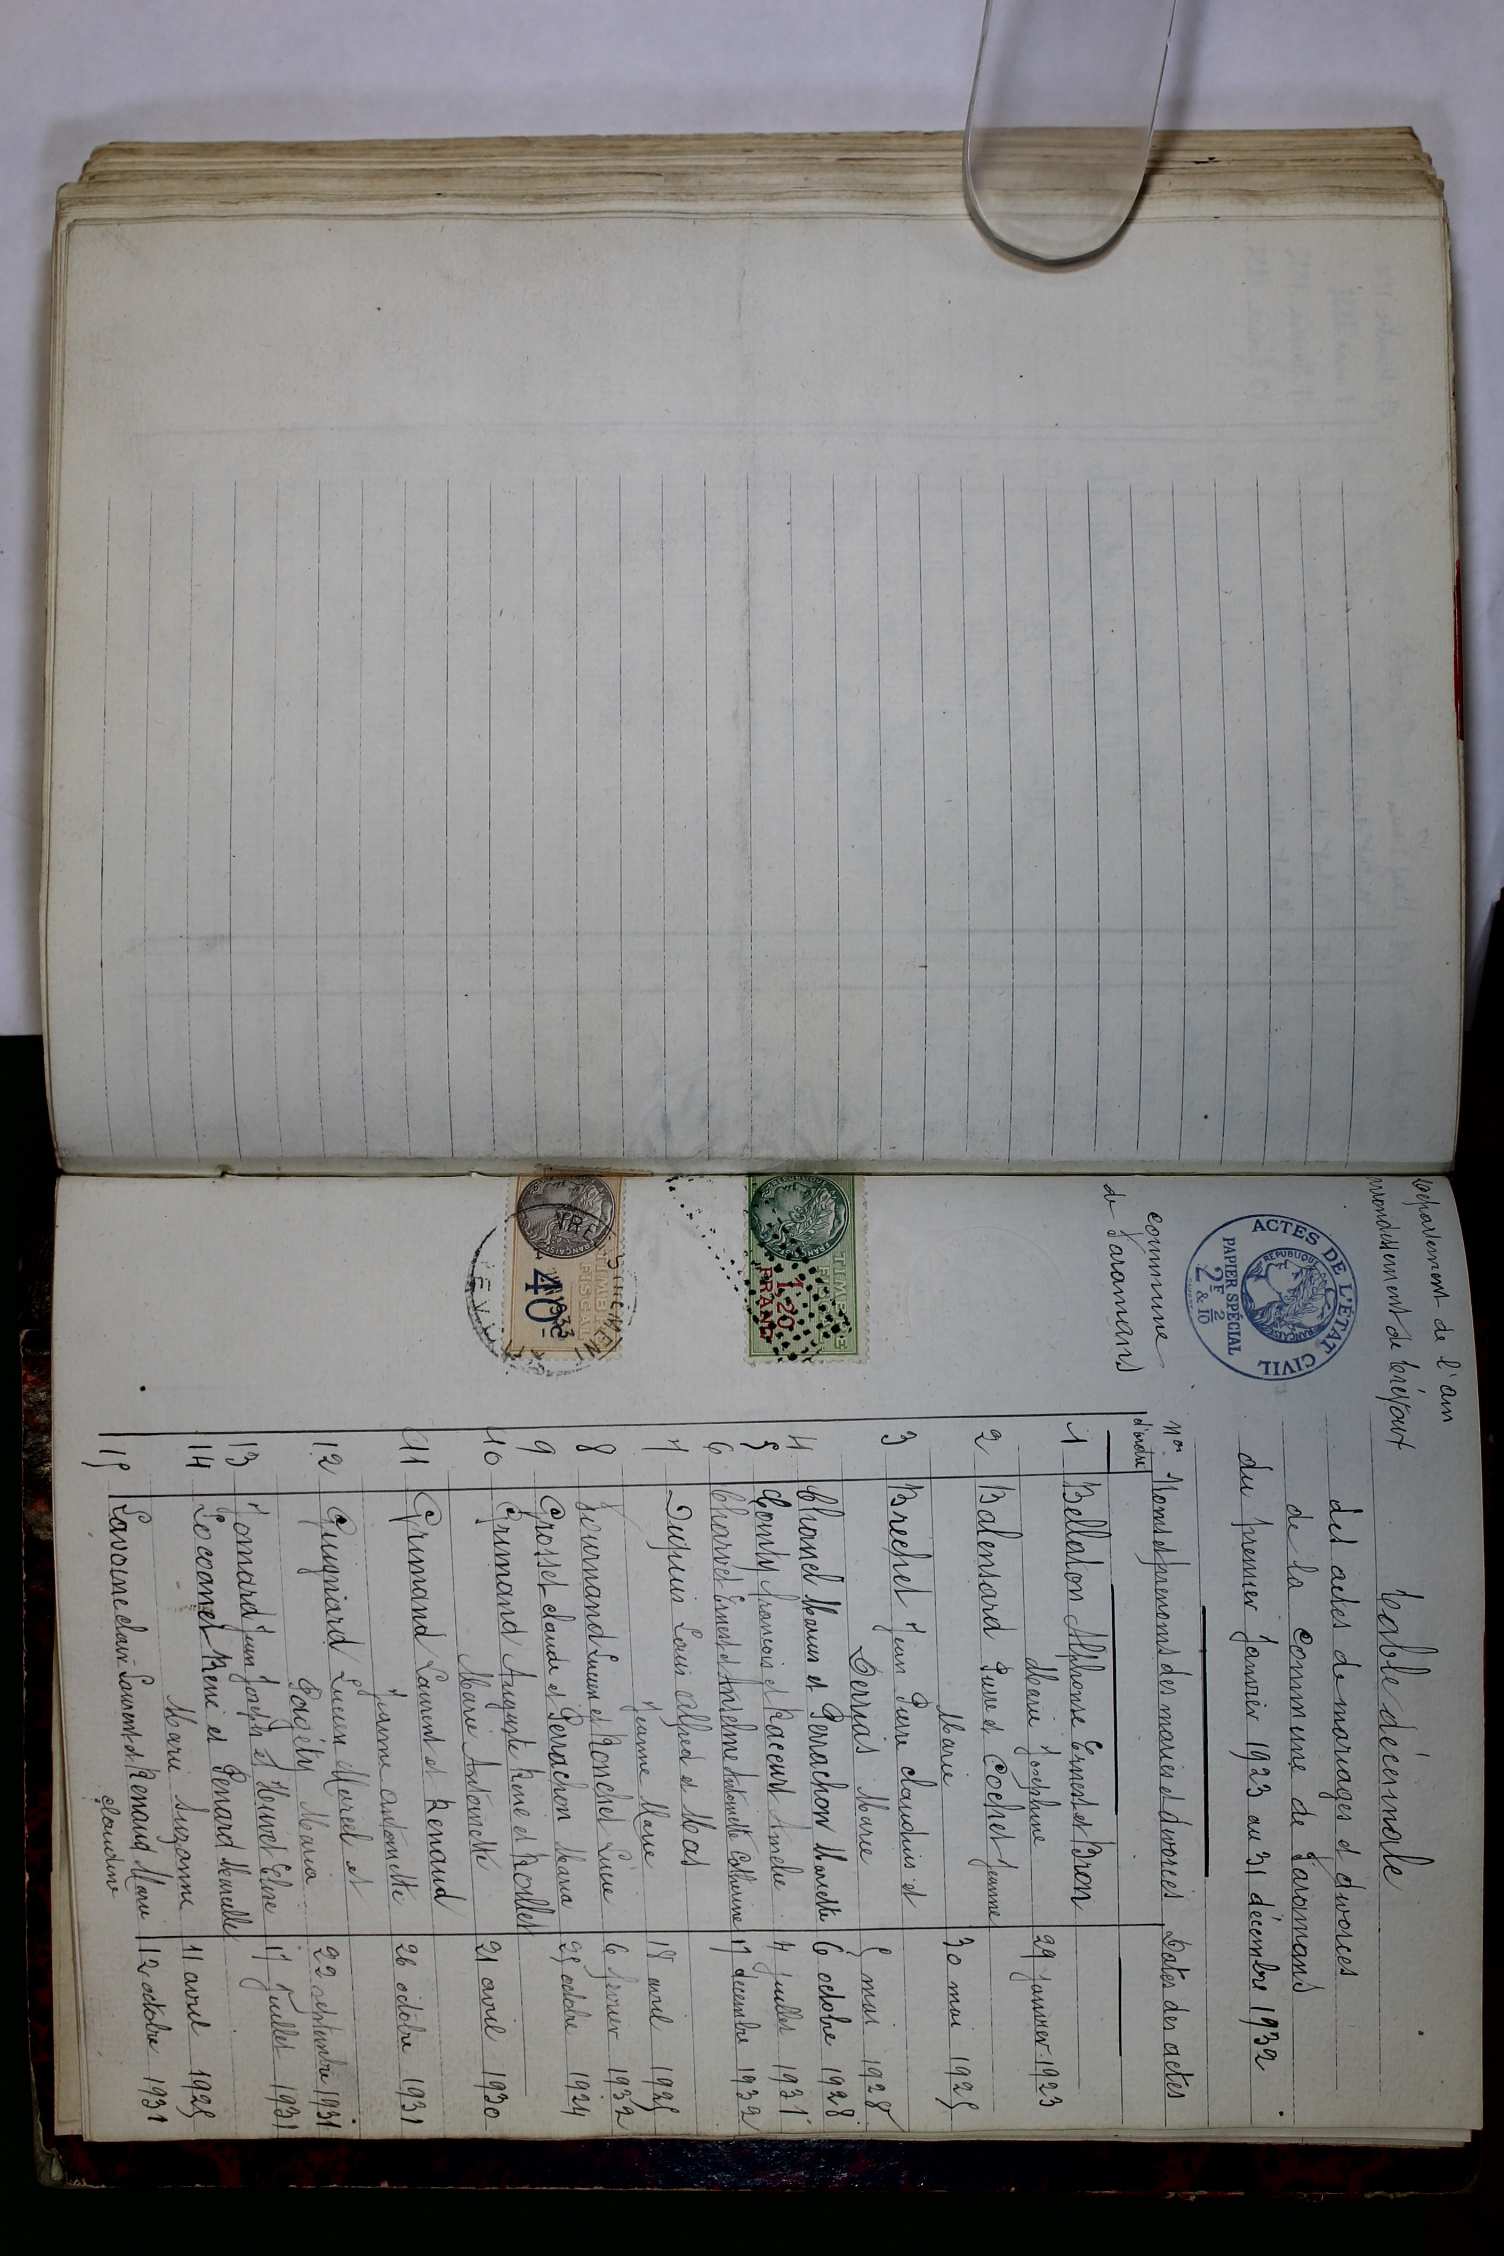 Département de l'ain
arrondissement de Trévoux
ACTES DE L'ETAT CIVIL
REPUBLIQUE FRANÇAISE
PAPIER SPÉCIAL
2F 2/10
commune
de Faramans
TIMBRE FISCAL
1.20
FRANC
TIMBRE FISCAL
40c
1933
Table décennale
des actes de mariages et divorces
de la Commune de Faramans
du premier Janvier 1923 au 31 décembre 1932
Nos d'ordre Noms et prenoms des mariés et divorcés Dates des actes
1 Bellaton Alphonse Ernest et Bron
Marie Josephine 29 janvier 1923
2 Balensard Pierre et Cochet Jeanne
Marie 30 mai 1925
3 Brechet Jean Pierre claudius et
Derrias Marie 5 mai 1928
4 Chanel Marius et Perrachon Mariette 6 octobre 1928
5 Conty francois et Raccurt Amelie 4 juillet 1931
6 Charvet Ernest et Anselme Antoinette Catherine 17 décembre 1932
7 Dupuis Louis Alfred et Mas
Jeanne Marie 18 avril 1925
8 Fournand Lucien et Ronchet Lucie 6 février 1932
9 Grosset claude et Perrachon Maria 25 octobre 1924
10 Grimand Auguste René et Roillet
Marie Antoinette 21 avril 1930
11 Grimand Laurent et Renaud
Jeanne antoinette 26 octobre 1931
12 Guigniard Lucien Marcel et
Pagély Maria 22 septembre 1931
13 Jomard Jean Joseph et Huvet Elise 17 Juillet 1931
14 Locoanet René et Penard Marcelle
Marie Suzanne 11 avril 1925
15 Lavoine clair Laurent et Renaud Marie 12 octobre 1931
claudine